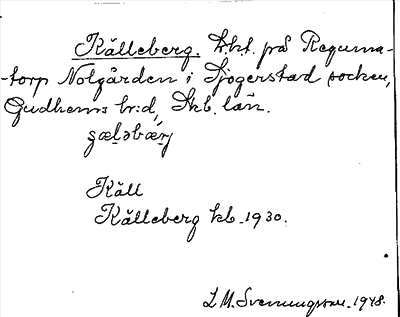 Källeberg. kbt. på Reguma-
-torp Nolgården i Sjogerstad socken,
Gudhems hr:d, Skb. län.
Käll
Källeberg kb. 1930.
L.M. Svenungsson. 1948.